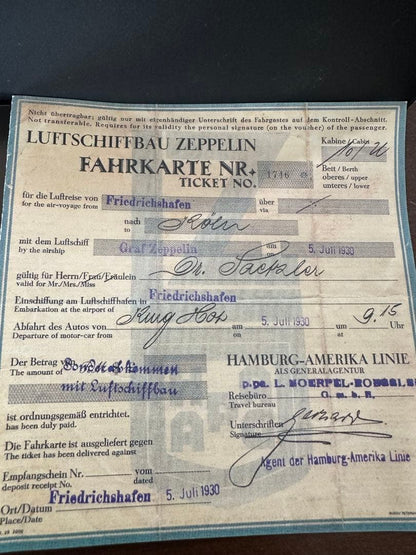 Nicht übertragbar; gültig nur mit eigenhändiger Unterschrift des Fahrgastes auf dem Kontroll-Abschnitt.
Not transferable. Requires for its validity the personal signature (on the voucher) of the passenger.
LUFTSCHIFFBAU ZEPPELIN
Kabine / Cabin
FAHRKARTE NR.
TICKET NO.
1746
Bett / Berth
oberes / upper
unteres / lower
für die Luftreise von Friedrichshafen über
for the air-voyage from via
nach Köln
to
mit dem Luftschiff Graf Zeppelin am 5. Juli 1930
by the airship on
gültig für Herrn/Frau/Fräulein Dr.
valid for Mr./Mrs./Miss
Einschiffung am Luftschiffhafen in Friedrichshafen
Embarkation at the airport of
Abfahrt des Autos von am 5. Juli 1930 um 9.15 Uhr
Departure of motor-car from on at
Der Betrag von Sonderabkommen
The amount of
mit Luftschiffbau
ist ordnungsgemäß entrichtet.
has been duly paid.
HAMBURG-AMERIKA LINIE
ALS GENERALAGENT:
Reisebüro G. m. b. H.
Travel bureau
Unterschriften
Signature
Agent der Hamburg-Amerika Linie
Die Fahrkarte ist ausgeliefert gegen
The ticket has been delivered against
Empfangschein Nr. vom
deposit receipt No. dated
Friedrichshafen 5. Juli 1930
Ort/Datum
Place/Date